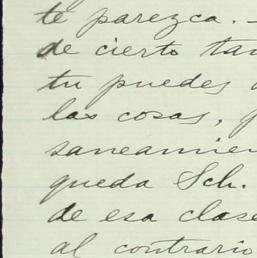 te parezca. —
de cierto tan
tu puedes
las cosas,
saneamien
queda Sch.
de esa clase
al contrario